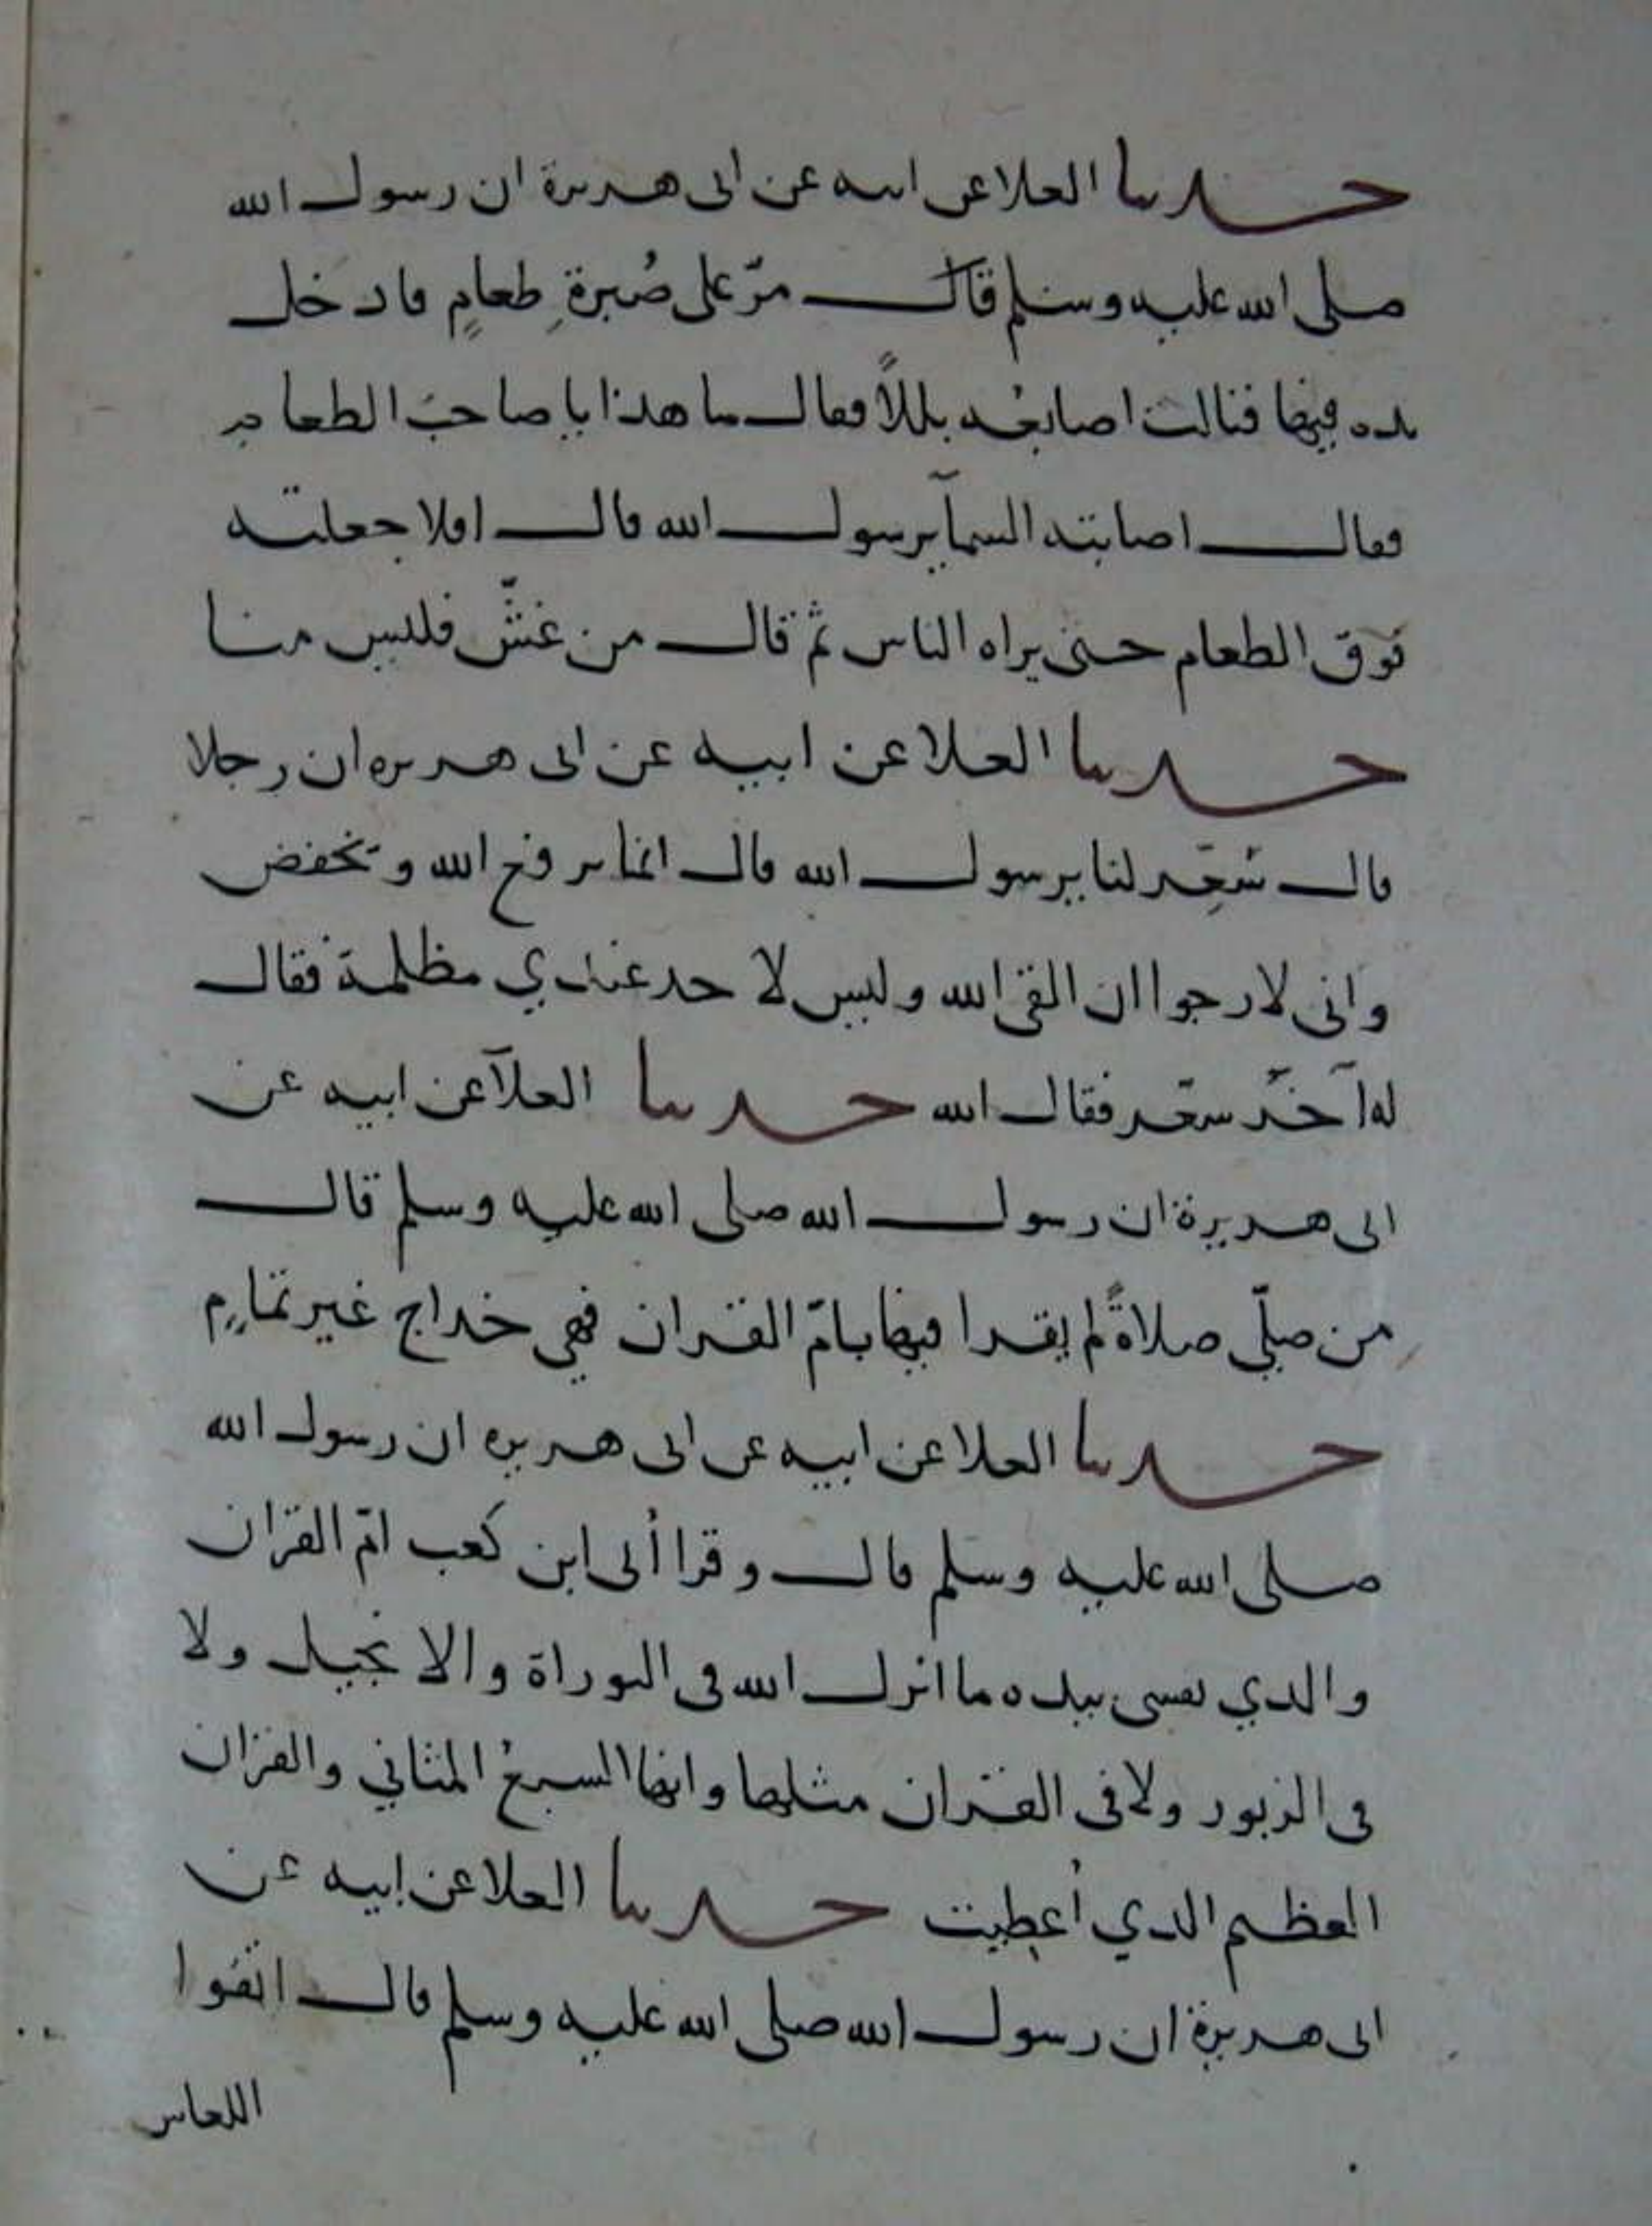 حدثنا العلا عن ابيه عن ابى هريرة ان رسول الله
صلى الله عليه وسلم قال مرّ على صُبرةِ طعامٍ فادخل
يده فيها فنالت اصابعُه بللاً فقال ما هذا يا صاحبَ الطعام
فقال اصابته السمآ يرسول الله قال افلا جعلته
فوق الطعام حتى يراه الناس ثم قال من غشّ فليس منا
حدثنا العلا عن ابيه عن ابى هريره ان رجلا
قال سَعِّر لنا يرسول الله قال انما يرفع الله ويخفض
وانى لارجوا ان القى الله وليس لاحد عندي مظلمة فقال
له آخَر سعّر فقال الله حدثنا العلآ عن ابيه عن
ابى هريرة ان رسول الله صلى الله عليه وسلم قال
من صلّى صلاةً لم يقرا فيها بامّ القران فهي خداج غير تمامٍ
حدثنا العلا عن ابيه عن ابى هريره ان رسول الله
صلى الله عليه وسلم قال وقرا أُبى ابن كعب امّ القران
والدي نفسى بيده ما انزل الله فى التوراة والانجيل ولا
فى الزبور ولا فى القران مثلها وانها السبعُ المثاني والقران
العظيم الدي أُعطيت حدثنا العلا عن ابيه عن
ابى هريرة ان رسول الله صلى الله عليه وسلم قال اتقوا
اللعاس